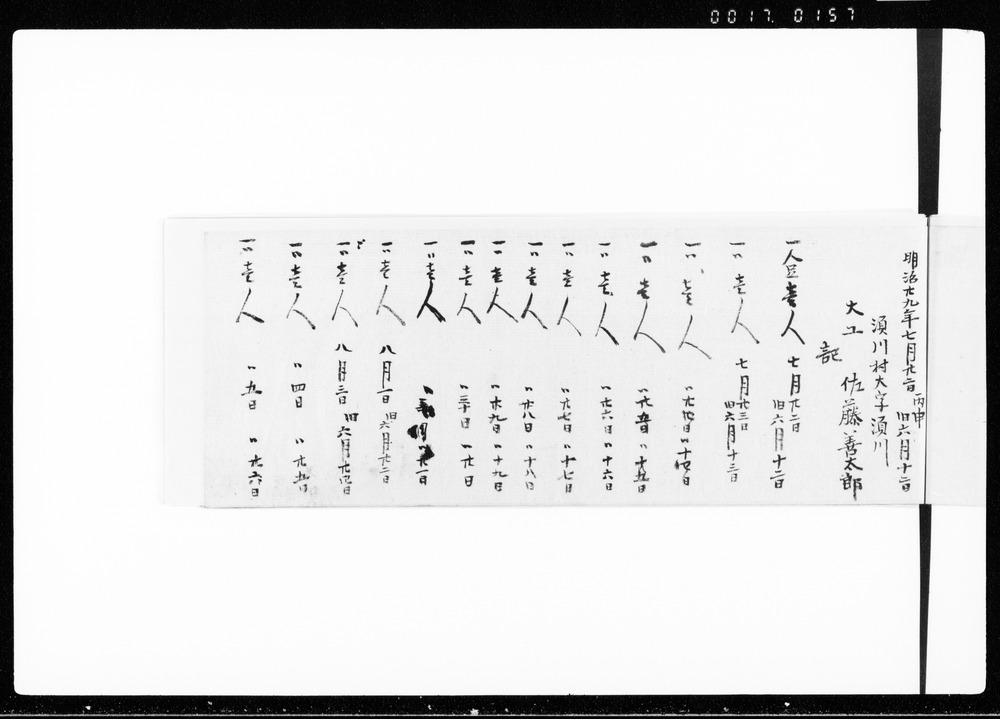 0017. 0157
明治廿九年七月廿二日 丙申 旧六月十二日
須川村大字須川
大工 佐藤善太郎
記
一人足壱人 七月廿二日 旧六月十二日
一〃壱人 七月廿三日 旧六月十三日
一〃壱人 〃廿四日 〃十四日
一〃壱人 〃廿五日 〃十五日
一〃壱人 〃廿六日 〃十六日
一〃壱人 〃廿七日 〃十七日
一〃壱人 〃廿八日 〃十八日
一〃壱人 〃廿九日 〃十九日
一〃壱人 〃三十日 〃廿日
一〃壱人 〃廿一日
一〃壱人 八月一日 旧六月廿二日
一〃壱人 八月三日 旧六月廿四日
一〃壱人 〃四日 〃廿五日
一〃壱人 〃五日 〃廿六日